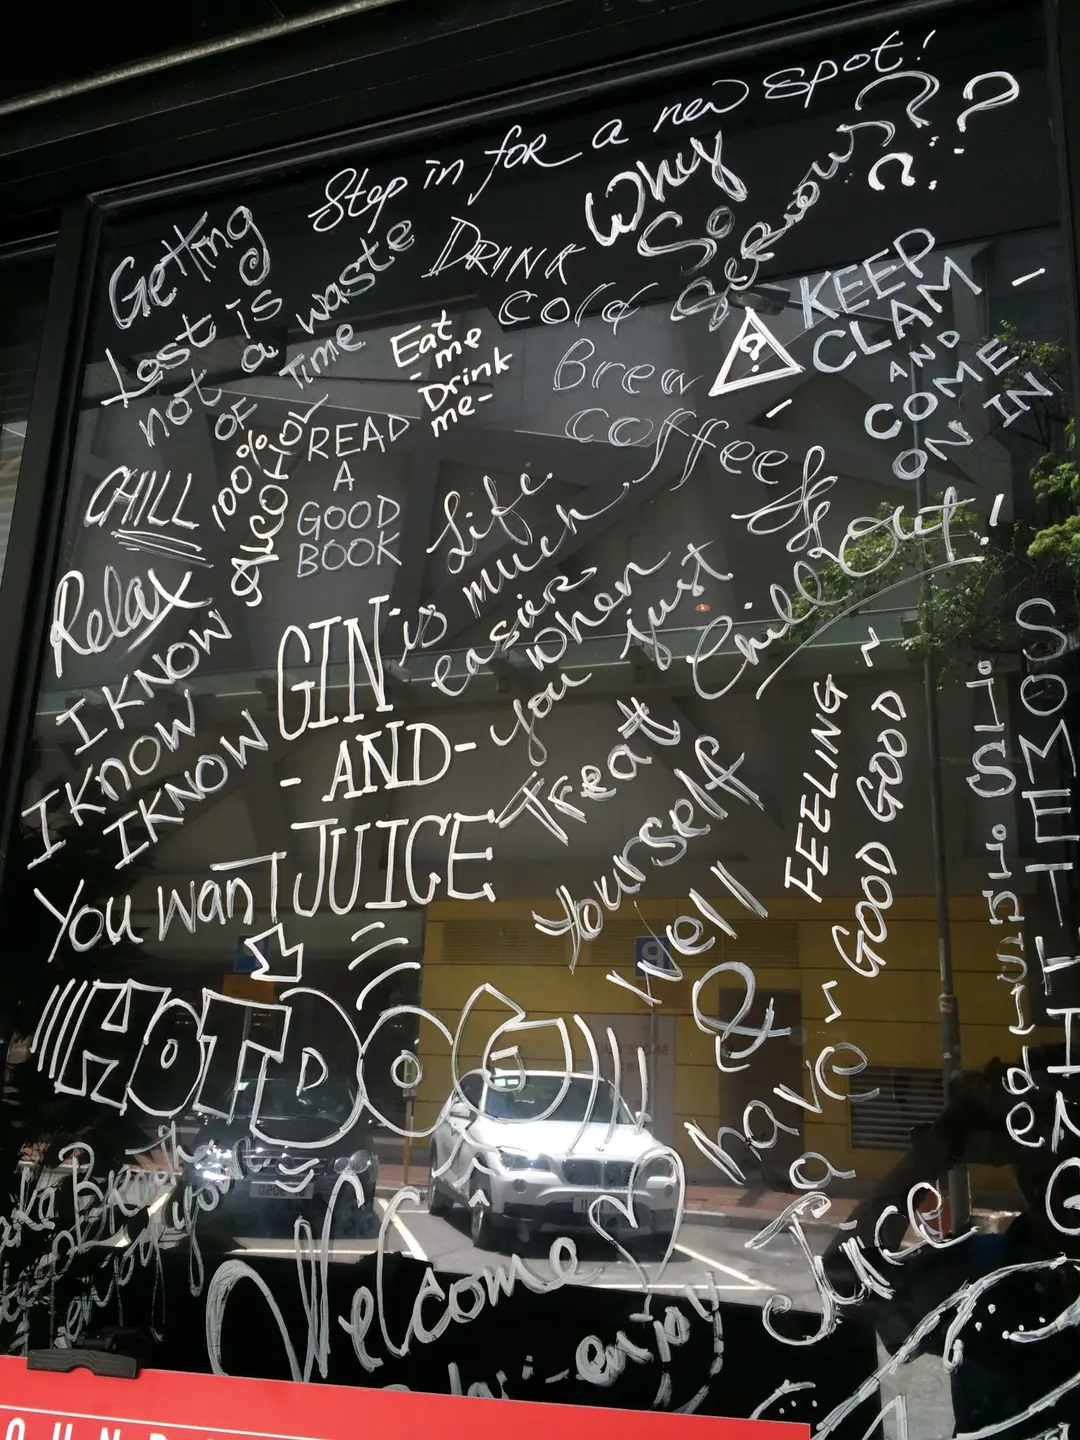 Step in for a new spot!
Getting
Lost is
not a waste
OF Time
DRINK
cold
Brew
Coffee
Why
So
serious???
KEEP
CLAM
AND
COME
ON IN
Eat
me
Drink
me-
100%
Alcohol
READ
A
GOOD
BOOK
CHILL
Relax
Life
is much
easier
when
you just
Chill out!
GIN
-AND-
JUICE
I KNOW
I KNOW
I KNOW
You want
HOTDOG
Treat
Yourself
Well
&
have
a
Juice
~ FEELING
GOOD GOOD ~
SOMETHING
is inside
Take a Break
enjoy your
Welcome
enjoy